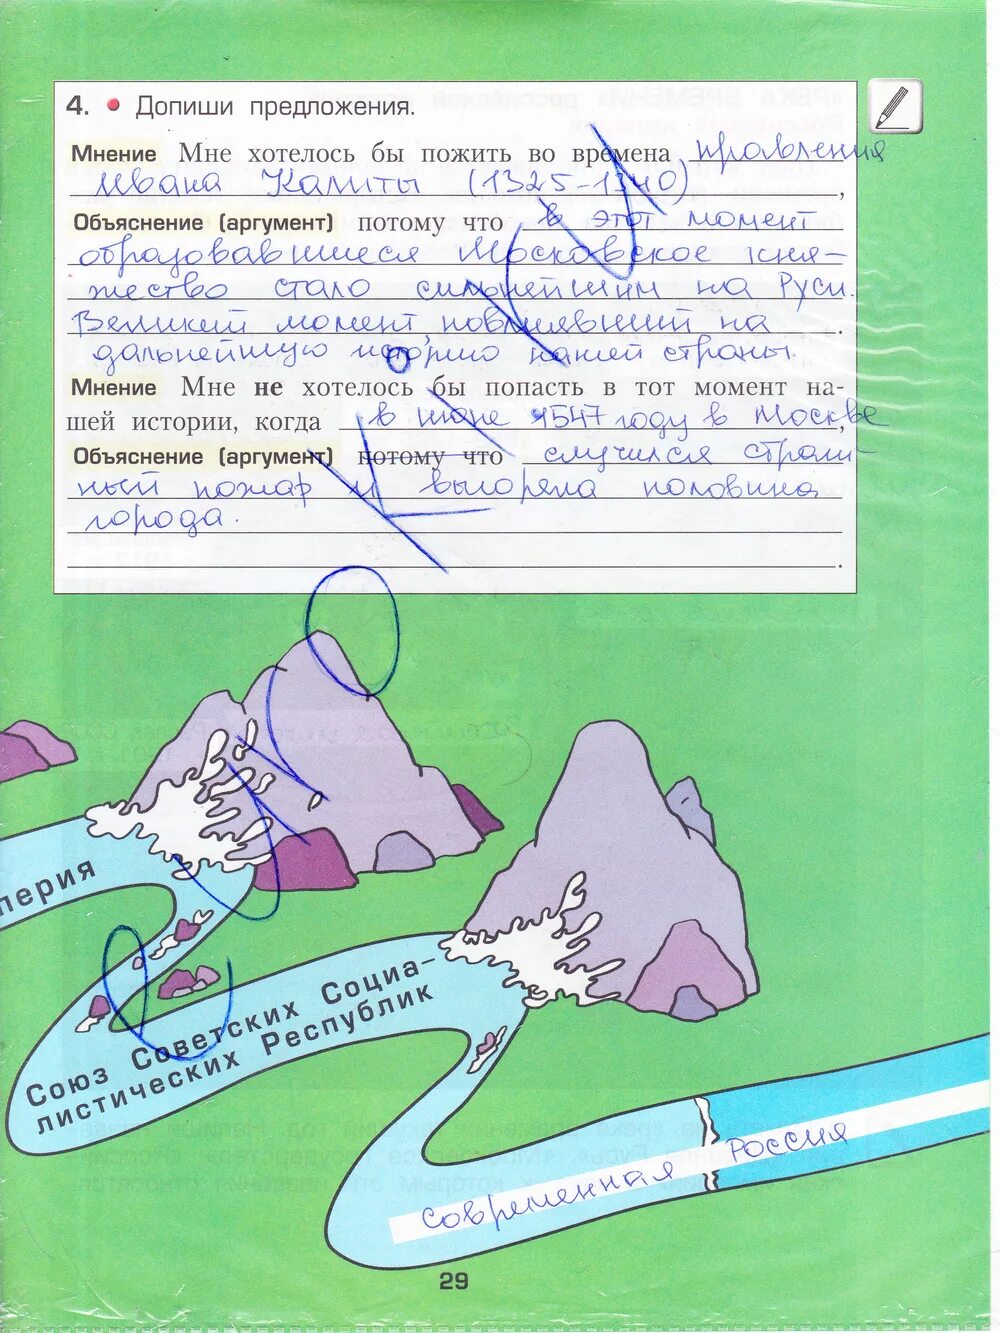 4. • Допиши предложения.
Мнение Мне хотелось бы пожить во времена правления
Ивана Калиты (1325-1340),
Объяснение (аргумент) потому что в этот момент
образовавшиеся Московское кня-
жество стало сильнейшим на Руси.
Великий момент, повлиявший на
дальнейшую историю нашей страны.
Мнение Мне не хотелось бы попасть в тот момент на-
шей истории, когда в июне 1547 году в Москве,
Объяснение (аргумент) потому что случился страш-
ный пожар и выгорела половина
города.
перия
Союз Советских Социа-
листических Республик
современная Россия
29